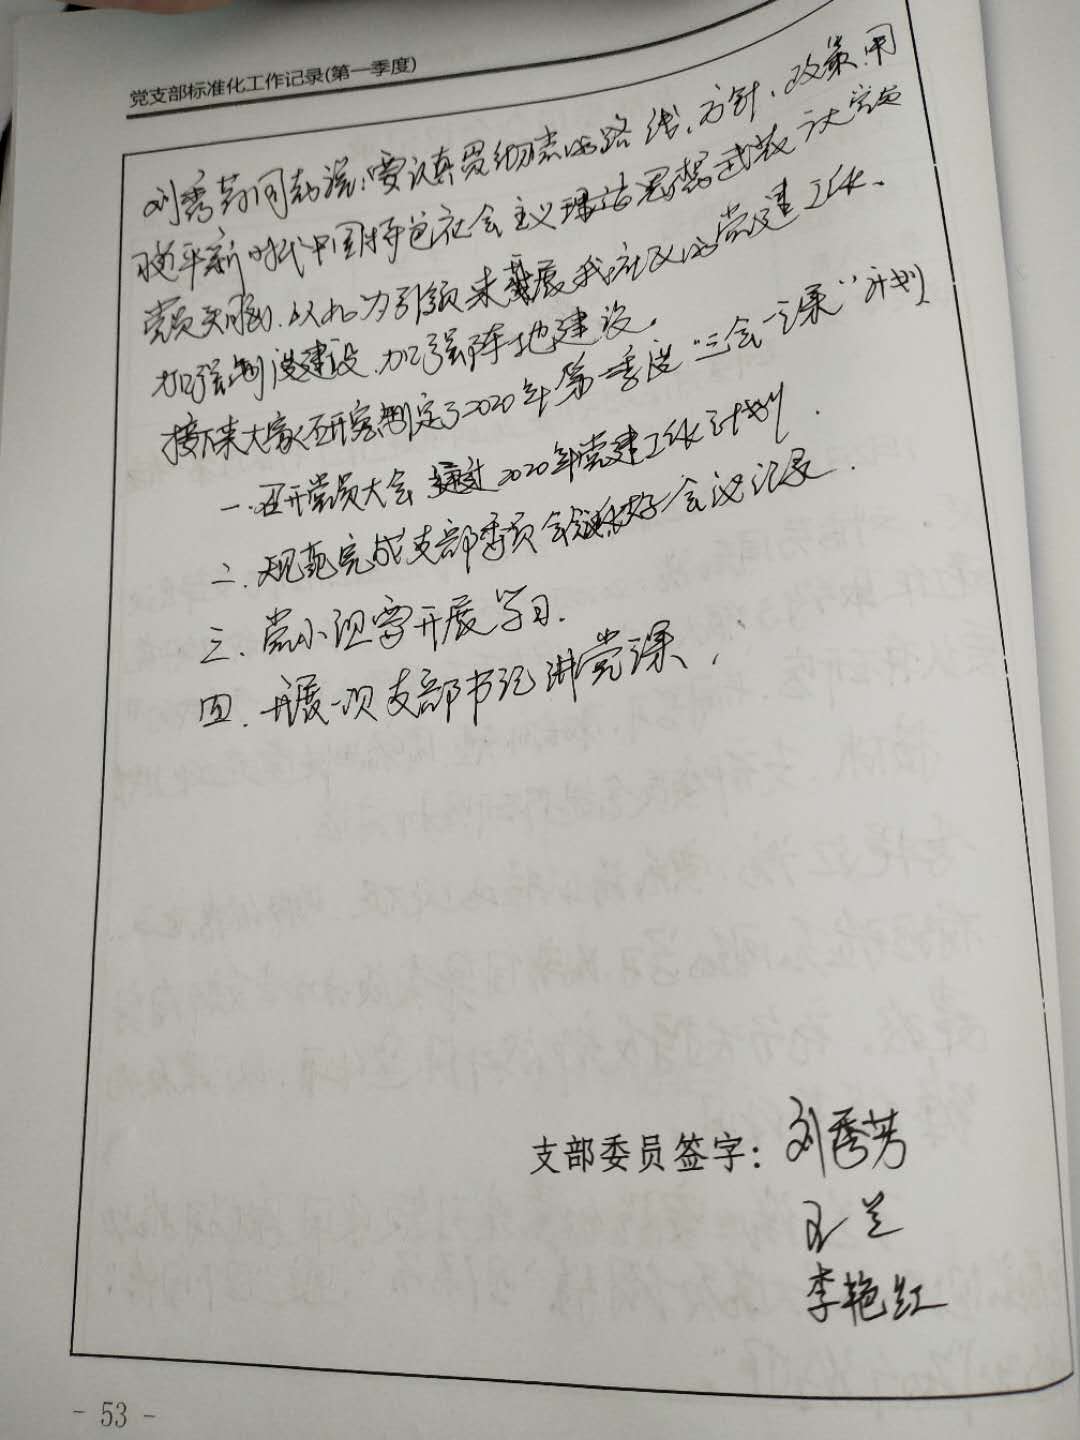 党支部标准化工作记录(第一季度)
刘秀芳同志说：要认真贯彻党的路线、方针、政策用
习近平新时代中国特色社会主义理论思想武装广大党员
党员头脑，以此为引领来发展我社区的党建工作、
加强制度建设、加强阵地建设。
接下来大家研究制定了2020年第一季度“三会一课”计划
一、召开党员大会 通过2020年党建工作计划．
二、规范完成支部委员会做好会议记录．
三、党小组开展学习．
四、开展一次支部书记讲党课、
支部委员签字：刘秀芳
王兰
李艳红
- 53 -